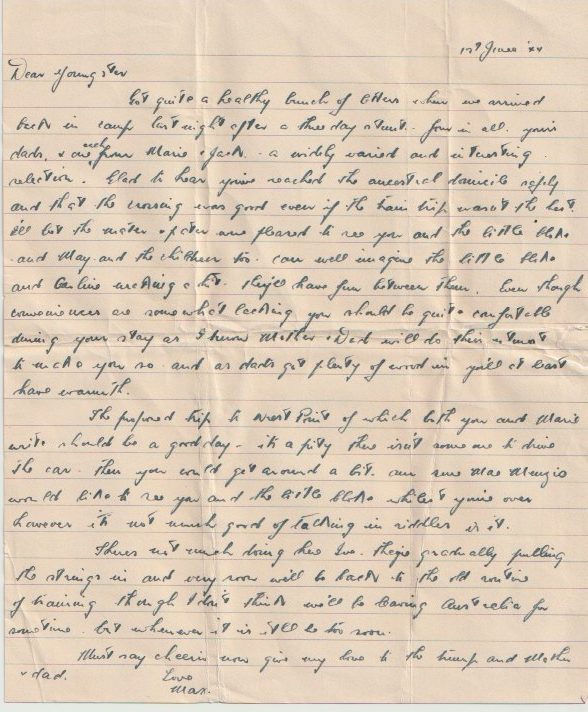 1st June '44
Dear Youngster
Got quite a healthy bunch of letters when we arrived
back in camp last night after a three day stunt. four in all. yours
dads, & one each from Marie & Jack. a widely varied and interesting
selection. Glad to hear you've reached the ancestral domicile safely
and that the crossing was good even if the train trip wasn't the best.
I'll bet the mater & pater were pleased to see you and the little bloke
and May and the children too. can well imagine the little bloke
and making a hit. they'll have fun between them. Even though
conveniences are somewhat lacking you should be quite comfortable
during your stay as I know Mother & Dad will do their utmost
to make you so. and as dads got plenty of wood in you'll at least
have warmth.
The proposed trip to West Point of which both you and Marie
write should be a good day - it's a pity there isn't someone to drive
the car. Then you would get around a bit. am sure Mac
would like to see you and the little bloke whilst you're over
however it's not much good of talking in riddles is it.
There's not much doing here they're gradually pulling
the strings in and very soon will be back to the old routine
of training though I don't think we'll be leaving Australia for
sometime. but whenever it is it'll be too soon.
Must say cheerio now give my love to the and Mother
& dad. Love
Max.